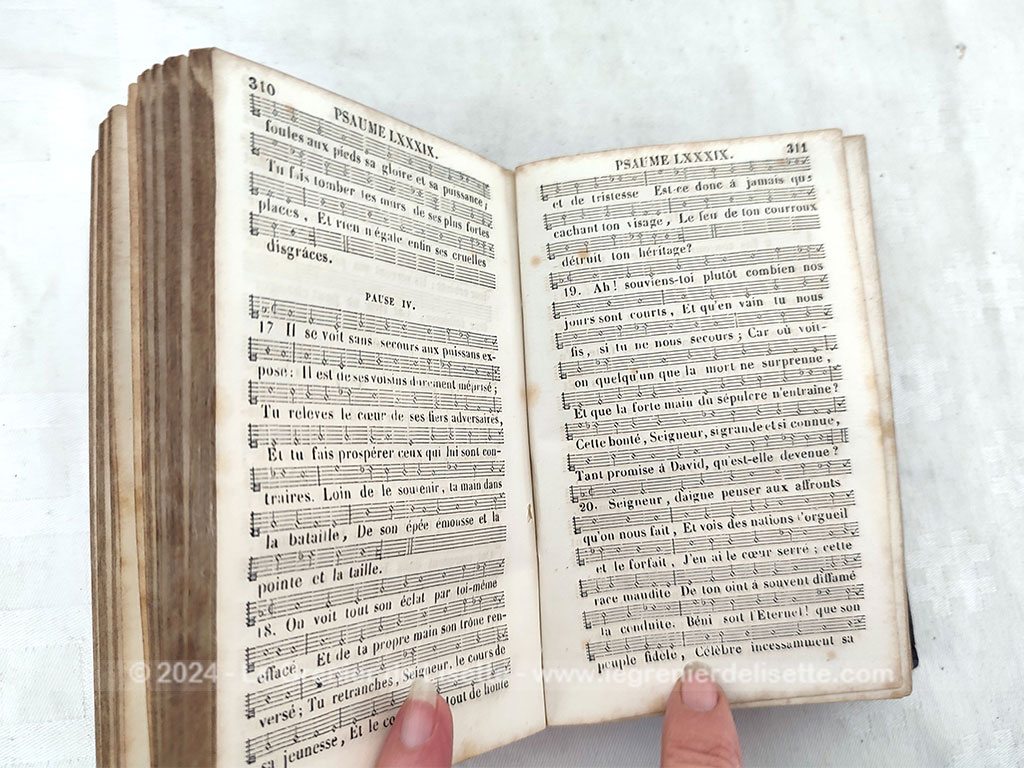 310
PSAUME LXXXIX.
foules aux pieds sa gloire et sa puissance;
Tu fais tomber tes murs de ses plus fortes
places, Et rien n'égale enfin ses cruelles
disgrâces.
PAUSE IV.
17 Il se voit sans secours aux puissans ex-
posé: Il est de ses voisins durement méprisé;
Tu releves le cœur de ses fiers adversaires,
Et tu fais prospérer ceux qui lui sont con-
traires. Loin de le soutenir, ta main dans
la bataille, De son épée émousse et la
pointe et la taille.
18. On voit tout son éclat par toi-même
effacé, Et de ta propre main son trône ren-
versé; Tu retranches, Seigneur, le cours de
sa jeunesse, Et le tout de honte
PSAUME LXXXIX.
311
et de tristesse Est-ce donc à jamais que
cachant ton visage, Le feu de ton courroux
détruit ton héritage?
19. Ah! souviens-toi plutôt combien nos
jours sont courts, Et qu'en vain tu nous
fis, si tu ne nous secours; Car où voit-
on quelqu'un que la mort ne surprenne,
Et que la forte main du sépulcre n'entraîne?
Cette bonté, Seigneur, si grande et si connue,
Tant promise à David, qu'est-elle devenue?
20. Seigneur, daigne penser aux affronts
qu'on nous fait, Et vois des nations l'orgueil
et le forfait, J'en ai le cœur serré; cette
race maudite De ton oint à souvent diffamé
la conduite. Béni soit l'Eternel! que son
peuple fidèle, Célèbre incessamment sa
© 2024 - www.legrenierdelisette.com